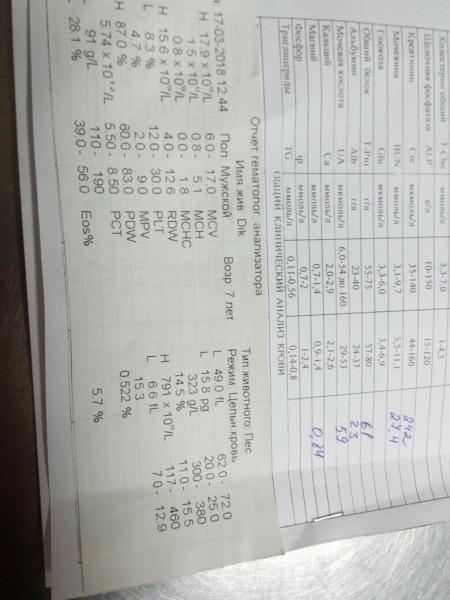 Холестерин общий T-Cho ммоль/л 3,3-7,0 1-4,5
Щелочная фосфатаза ALP е/л 10-150 15-120
Креатинин Cre ммоль/л 35-140 44-160 242
Мочевина BUN ммоль/л 3,1-9,7 5,5-11,1 27,4
Глюкоза Glu ммоль/л 3,3-6,0 3,4-6,9
Общий белок T-Pro г/л 55-75 57-80 61
Альбумин Alb г/л 23-40 24-37 23
Мочевая кислота UA ммоль/л 6,0-54 до 160 29-53 59
Кальций Ca ммоль/л 2,0-2,9 2,1-2,6
Магний ммоль/л 0,7-1,4 0,9-1,4 0,84
Фосфор ip. ммоль/л 0,7-2 1-2,4
Триглицериды TG ммоль/л 0,11-0,56 0,14-0,8
ОБЩИЙ КЛИНИЧЕСКИЙ АНАЛИЗ КРОВИ
Отчет гематолог. анализатора
Имя жив: Dik Тип животного: Пес
17-03-2018 12:44 Пол: Мужской Возр: 7 лет Режим: Цельн.кровь
H 17.9 x 10⁹/L 6.0 - 17.0 MCV L 49.0 fL 62.0 - 72.0
1.5 x 10⁹/L 0.8 - 5.1 MCH L 15.8 pg 20.0 - 25.0
0.8 x 10⁹/L 0.0 - 1.8 MCHC 323 g/L 300 - 380
H 15.6 x 10⁹/L 4.0 - 12.6 RDW 14.5 % 11.0 - 15.5
L 8.3 % 12.0 - 30.0 PLT H 791 x 10⁹/L 117 - 460
4.7 % 2.0 - 9.0 MPV L 6.6 fL 7.0 - 12.9
H 87.0 % 60.0 - 83.0 PDW 15.3
5.74 x 10¹²/L 5.50 - 8.50 PCT 0.522 %
L 91 g/L 110 - 190
L 28.1 % 39.0 - 56.0 Eos% 5.7 %